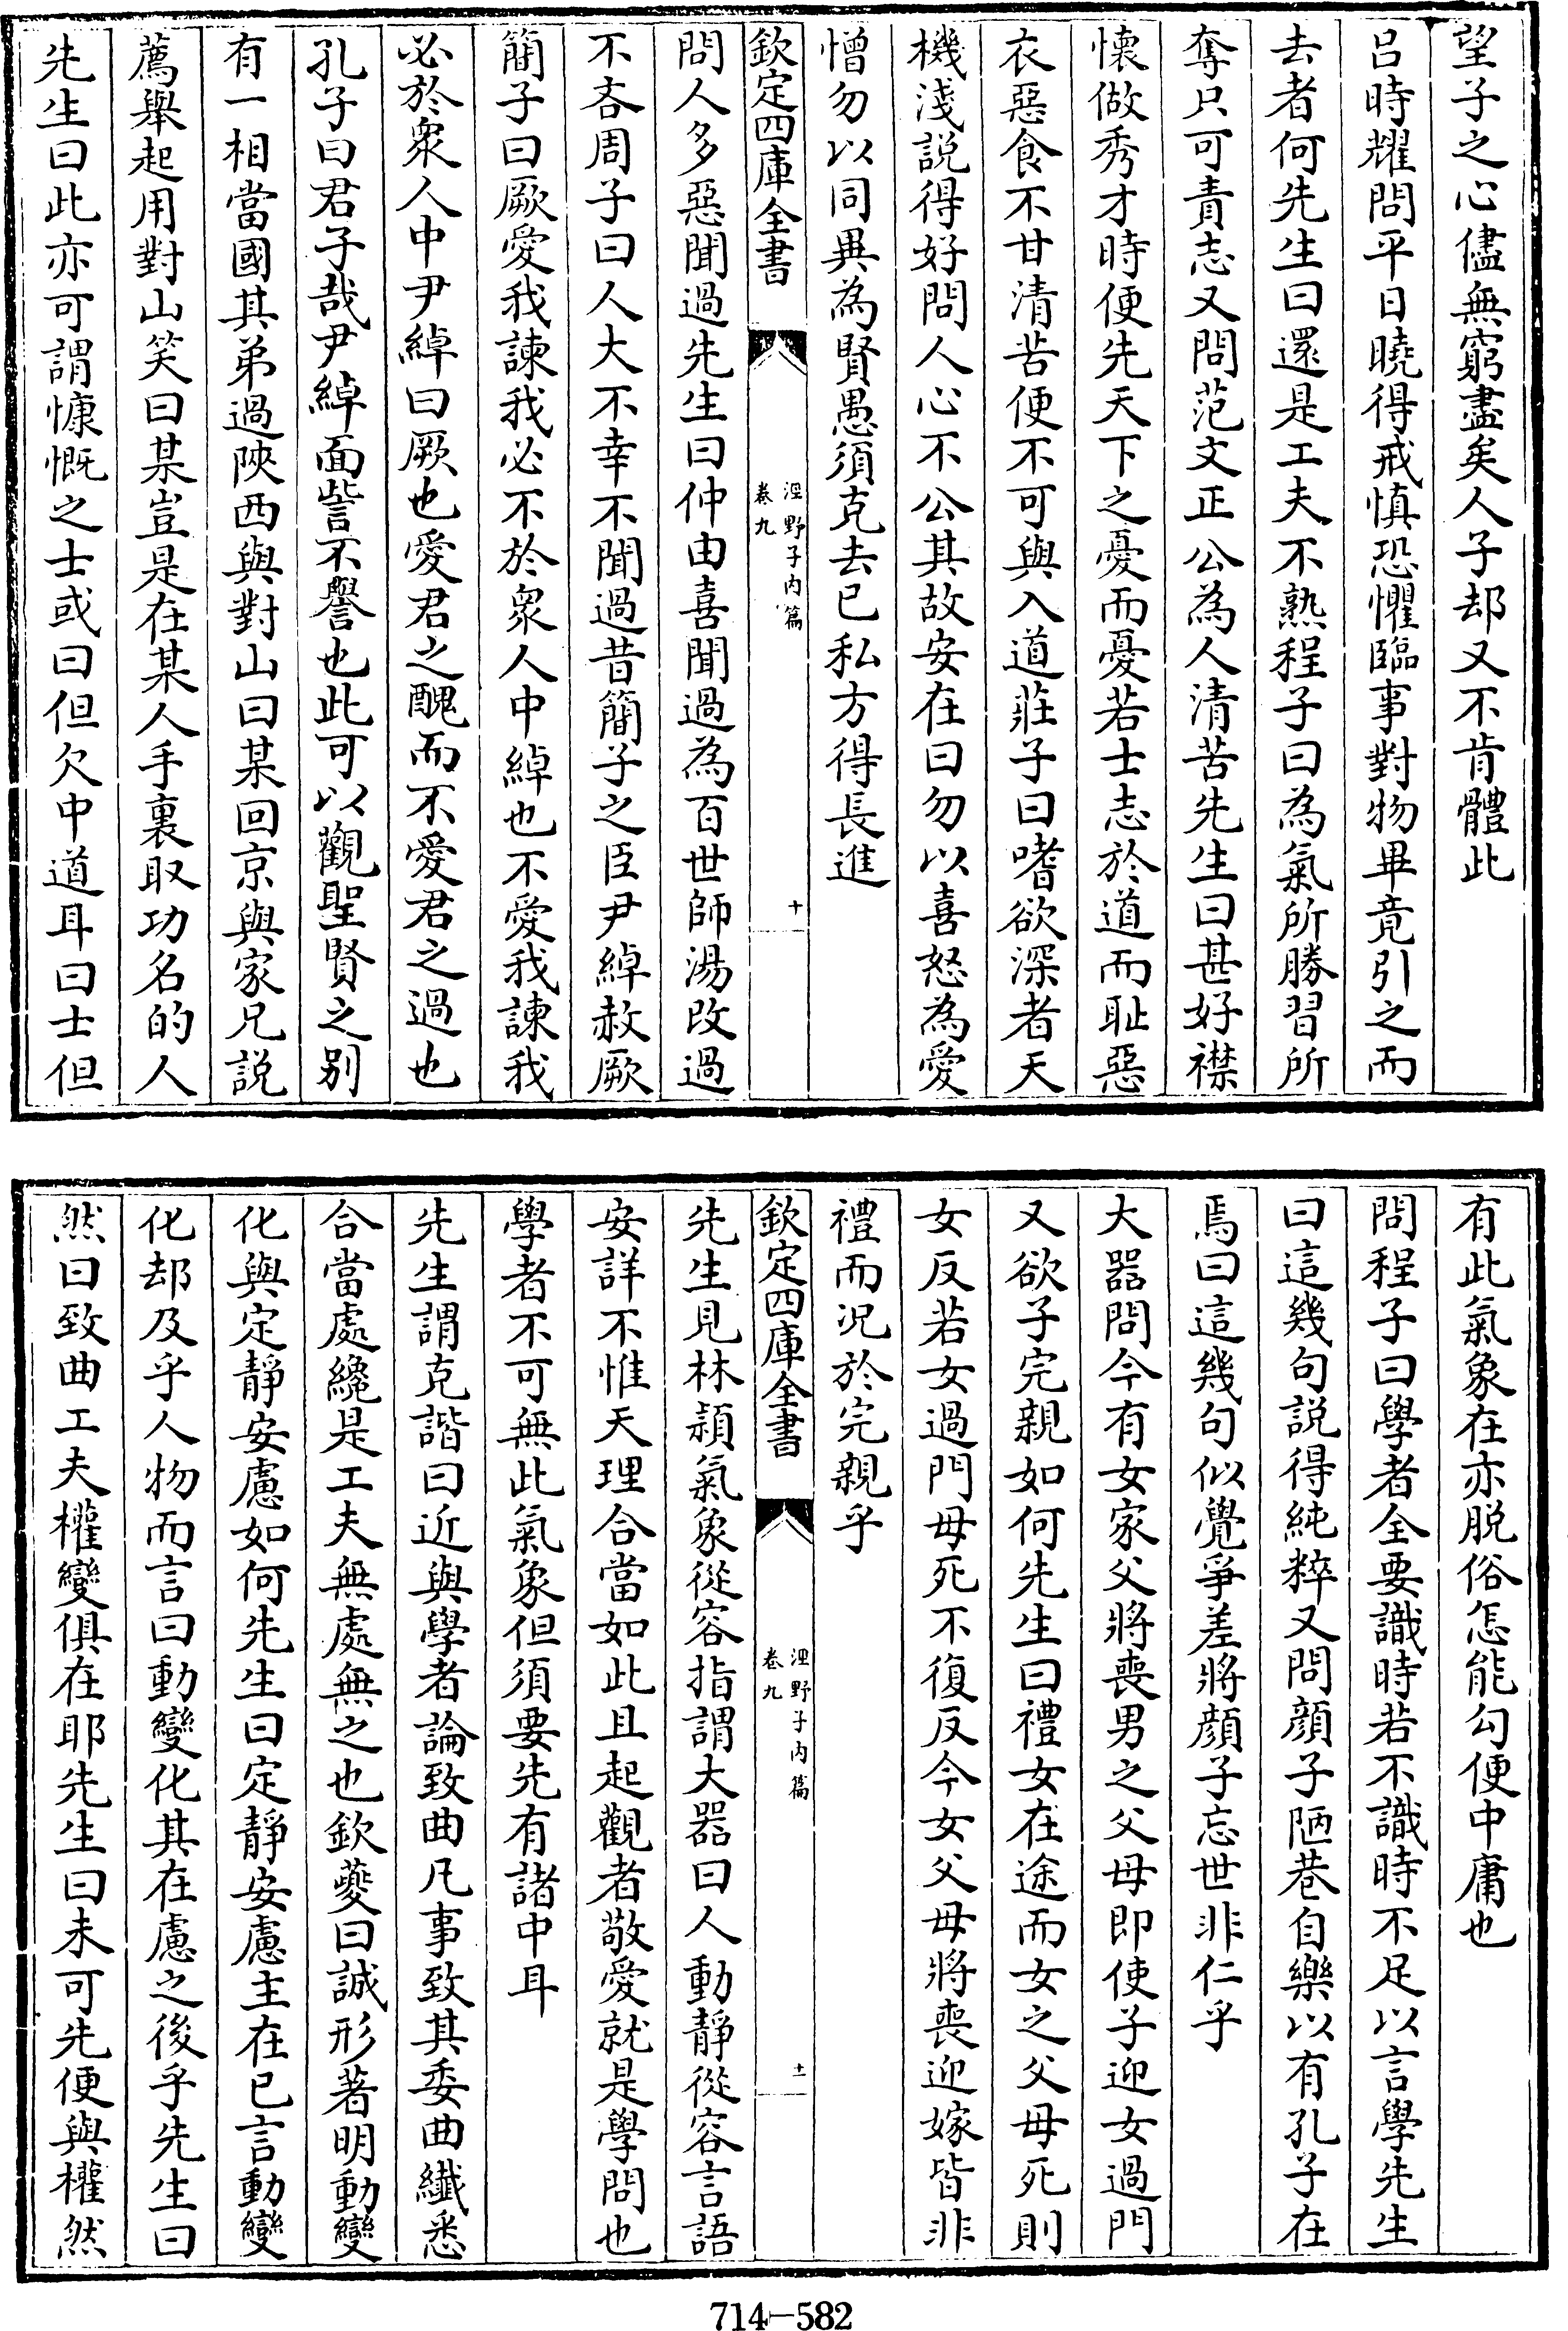 望子之心儘無窮盡矣人子却又不肯體此
呂時耀問平日曉得戒慎恐懼臨事對物畢竟引之而
去者何先生曰還是工夫不熟程子曰為氣所勝習所
奪只可責志又問范文正公為人清苦先生曰甚好襟
懷做秀才時便先天下之憂而憂若士志於道而耻惡
衣惡食不甘清苦便不可與入道莊子曰嗜欲深者天
機淺説得好問人心不公其故安在曰勿以喜怒為愛
憎勿以同異為賢愚須克去已私方得長進
欽定四庫全書
涇野子内篇
卷九
十
問人多惡聞過先生曰仲由喜聞過為百世師湯改過
不吝周子曰人大不幸不聞過昔簡子之臣尹綽赦厥
簡子曰厥愛我諫我必不於衆人中綽也不愛我諫我
必於衆人中尹綽曰厥也愛君之醜而不愛君之過也
孔子曰君子哉尹綽面訾不譽也此可以觀聖賢之别
有一相當國其弟過陜西與對山曰某回京與家兄説
薦舉起用對山笑曰某豈是在某人手裏取功名的人
先生曰此亦可謂慷慨之士或曰但欠中道耳曰士但
有此氣象在亦脱俗怎能勾便中庸也
問程子曰學者全要識時若不識時不足以言學先生
曰這幾句説得純粹又問顔子陋巷自樂以有孔子在
焉曰這幾句似覺爭差將顔子忘世非仁乎
大器問今有女家父將喪男之父母即使子迎女過門
又欲子完親如何先生曰禮女在途而女之父母死則
女反若女過門母死不復反今女父母將喪迎嫁皆非
禮而况於完親乎
欽定四庫全書
涇野子内篇
卷九
十一
先生見林頴氣象從容指謂大器曰人動靜從容言語
安詳不惟天理合當如此且起觀者敬愛就是學問也
學者不可無此氣象但須要先有諸中耳
先生謂克諧曰近與學者論致曲凡事致其委曲纎悉
合當處纔是工夫無處無之也欽夔曰誠形著明動變
化與定靜安慮如何先生曰定靜安慮主在已言動變
化却及乎人物而言曰動變化其在慮之後乎先生曰
然曰致曲工夫權變俱在耶先生曰未可先便與權然
714-582